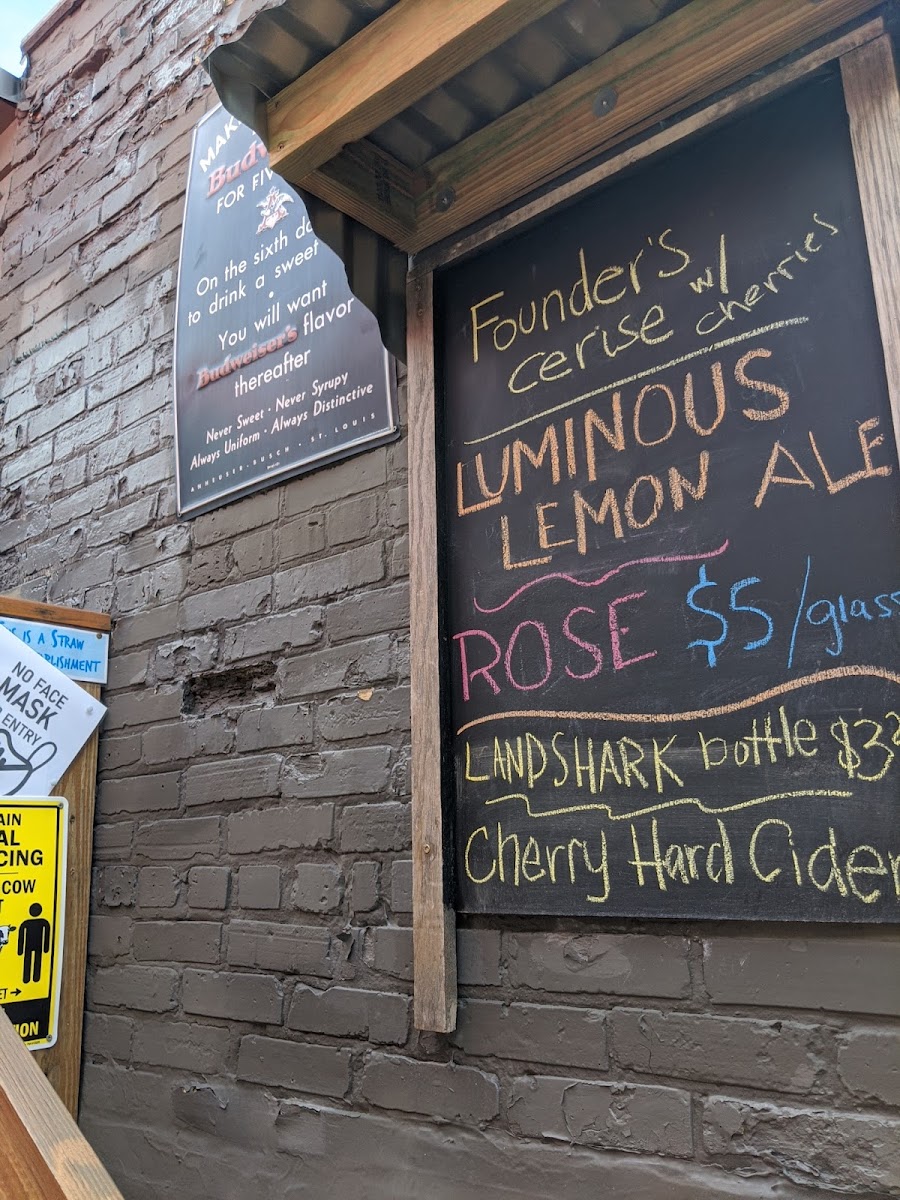 FOR
On the sixth
to drink a sweet
You will want
Budweiser's flavor
thereafter
Never Sweet · Never Syrupy
Always Uniform · Always Distinctive
ANHEUSER-BUSCH · ST. LOUIS
Founder's
cerise w/
cherries
LUMINOUS
LEMON ALE
ROSE $5/glass
LANDSHARK bottle
Cherry Hard Cider
IS A STRAW
NO FACE
MASK
ENTRY
COW